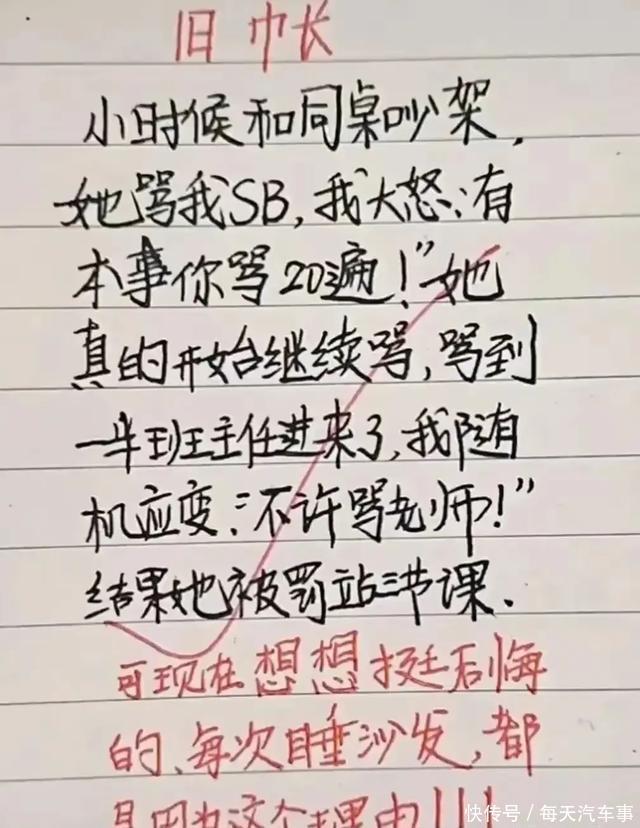 旧巾长
小时候和同桌吵架，
她骂我SB，我大怒：有
本事你骂20遍！”她
真的开始继续骂，骂到
一半班主任进来了，我随
机应变：“不许骂老师！”
结果她被罚站三节课．
可现在想想挺后悔
的、每次睡沙发，都
是因为这个理由！！！
快传号／每天汽车事